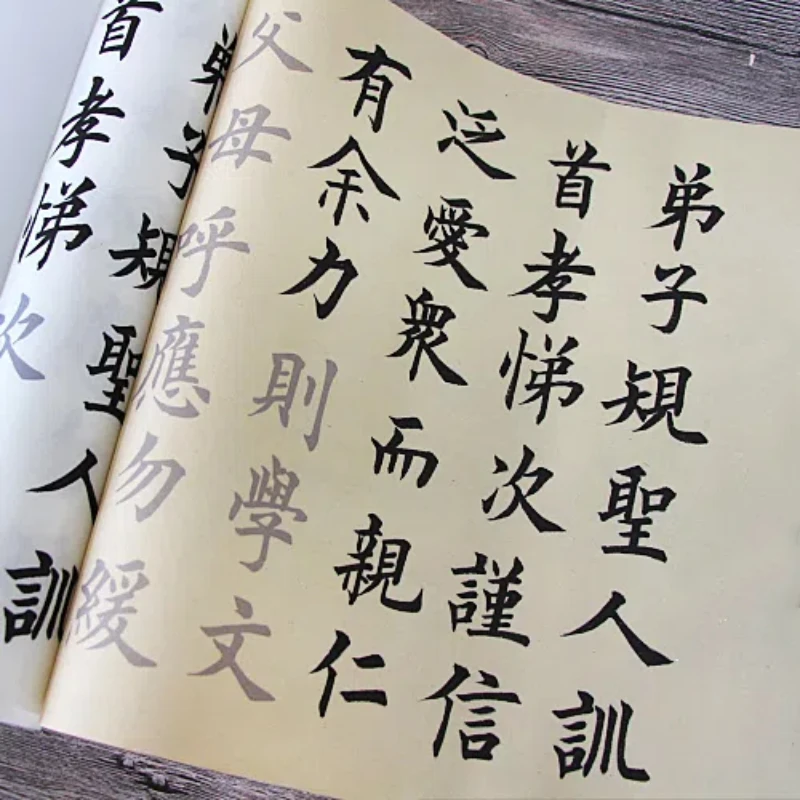 弟子䂓聖人訓
首孝悌次謹信
泛愛衆而親仁
有余力則學文
父母呼應勿緩
弟子䂓聖人訓
首孝悌次